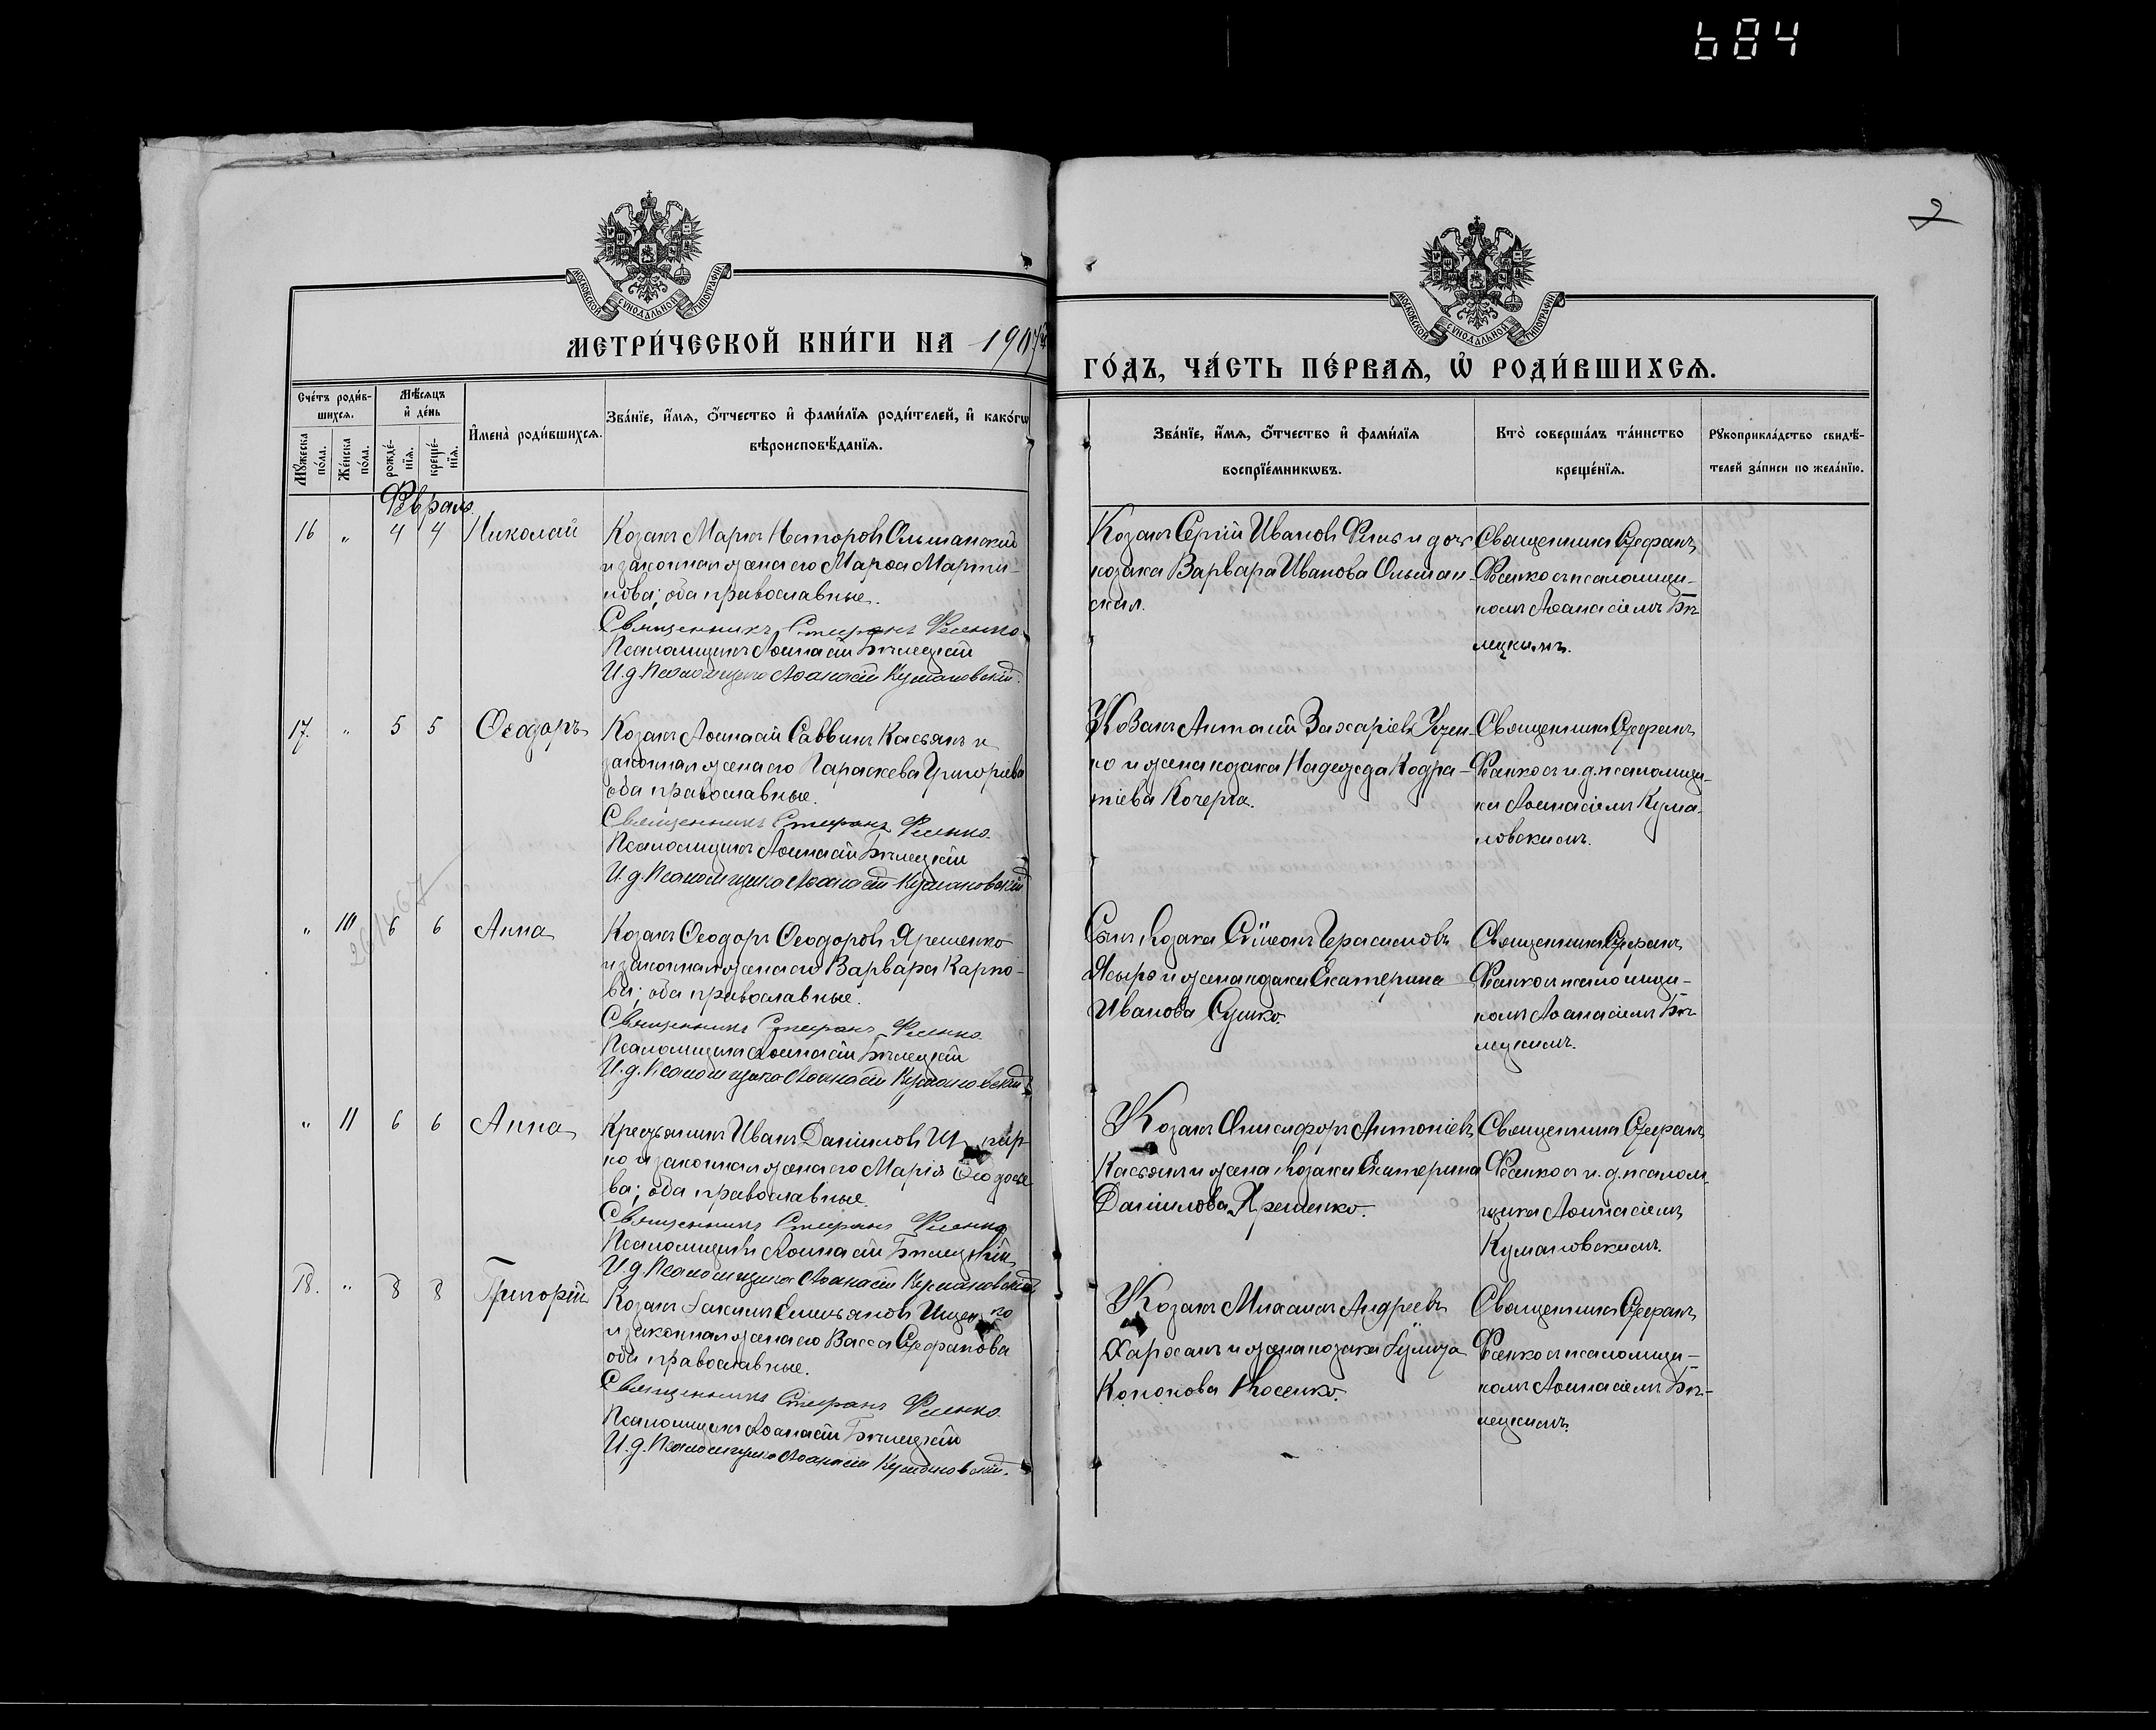 684
2
МОСКОВСКОЙ СУНОДАЛЬНОЙ ТИПОГРАФІИ
МОСКОВСКОЙ СУНОДАЛЬНОЙ ТИПОГРАФІИ
МЕТРИ́ЧЕСКОЙ КНИ́ГИ НА 1907
ГО́ДЪ, ЧА́СТЬ ПЕ́РВАѦ, Ѡ҆ РОДИ́ВШИХСѦ.
Сче́тъ роди́в-
шихся.
Мꙋ́жеска по́ла.
Же́нска по́ла.
Мѣ́сяцъ
и҆ де́нь
рожде́-
нїя.
креще́-
нїя.
И҆мена̀ роди́вшихся.
Зва́нїе, и҆́мя, ѻ҆́тчество и҆ фами́лїя роди́телей, и҆ како́гѡ
вѣроисповѣ́данїя.
Зва́нїе, и҆́мя, ѻ҆́тчество и҆ фами́лїя
воспрїе́мникѡвъ.
Кто̀ соверша́лъ та́инство
креще́нїя.
Рꙋкоприкла́дство свидѣ́-
телей за́писи по жела́нїю.
Февраль.
16 " 4 4 Николай
Козакъ Маркъ Несторовъ Ольшанский
и законная жена его Марѳа Марти-
нова; оба православные.
Священникъ Стефанъ Фенько.
Псаломщикъ Аѳанасій Бѣлецкій
И.д. Псаломщика Аѳанасій Кумановскій.
Козакъ Сергій Ивановъ и дочь
козака Варвара Иванова Ольшан-
ская.
Священникъ Стефанъ
Фенько съ псаломщи-
комъ Аѳанасіемъ Бѣ-
лецкимъ.
17. " 5 5 Ѳеодоръ
Козакъ Аѳанасій Саввинъ Касьянъ и
законная жена его Параскева Григоріева
оба православные.
Священникъ Стефанъ Фенько.
Псаломщикъ Аѳанасій Бѣлецкій
И.д. Псаломщика Аѳанасій Кумановскій
Козакъ Антоній Захаріевъ
ко и жена козака Надежда Кодра-
тіева Кочерга.
Священникъ Стефанъ
Фенько съ и.д. псаломщи-
ка Аѳанасіемъ Кума-
новскимъ.
" 10 6 6 Анна
Козакъ Ѳеодоръ Ѳеодоровъ Ярешенко
и законная жена его Варвара Карпо-
ва; оба православные.
Священникъ Стефанъ Фенько.
Псаломщикъ Аѳанасій Бѣлецкій
И.д. Псаломщика Аѳанасій Кумановскій
Сынъ козака Сѷмеонъ Герасимовъ
и жена козака Екатерина
Иванова Сушко.
Священникъ Стефанъ
Фенько съ псаломщи-
комъ Аѳанасіемъ Бѣ-
лецкимъ.
" 11 6 6 Анна
Крестьянинъ Иванъ Даніиловъ
ко и законная жена его Марія Ѳеодосіе-
ва; оба православные.
Священникъ Стефанъ Фенько
Псаломщикъ Аѳанасій Бѣлецкій
И.д. Псаломщика Аѳанасій Кумановскій
Козакъ Онисифоръ Антоніевъ
Касьянъ и жена козака Екатерина
Даніилова Ярешенко.
Священникъ Стефанъ
Фенько съ и.д. псалом-
щика Аѳанасіемъ
Кумановскимъ.
18. " 8 8 Григорій
Козакъ Іакимъ Емельяновъ Ищенко
и законная жена его Васса Стефанова
оба православные.
Священникъ Стефанъ Фенько.
Псаломщикъ Аѳанасій Бѣлецкій
И.д. Псаломщика Аѳанасій Кумановскій.
Козакъ Михаилъ Андреевъ
и жена козака
Кононова Косенко.
Священникъ Стефанъ
Фенько съ псаломщи-
комъ Аѳанасіемъ Бѣ-
лецкимъ.